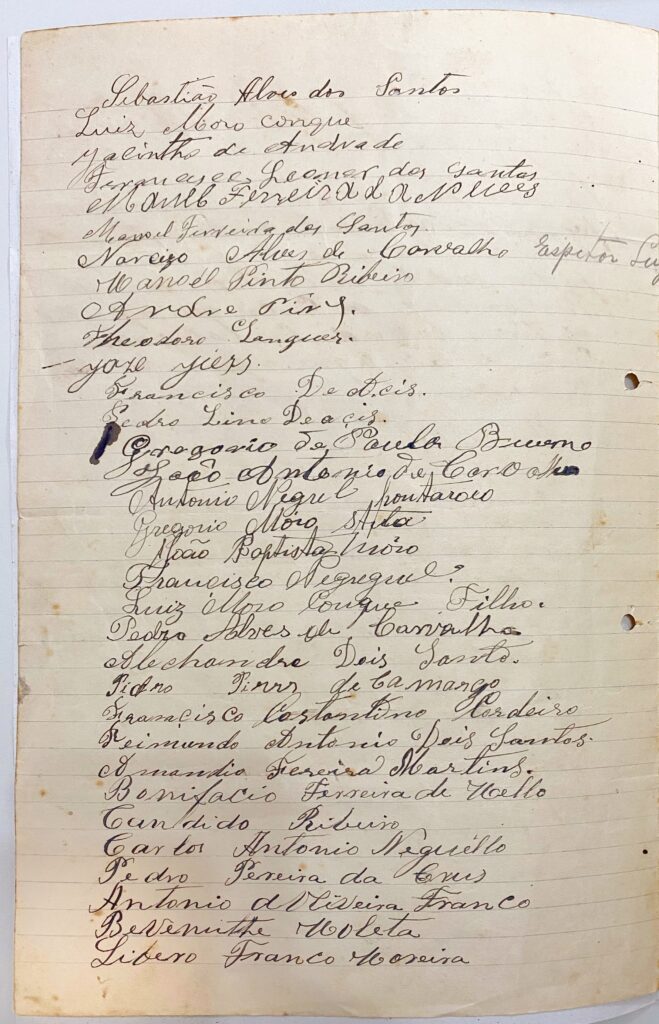 Sebastião Alves dos Santos
Luiz Moro Conque
Jacintho de Andrade
Francisco Leonor dos Santos
Ferreira
Manoel Ferreira dos Santos
Narcizo Alves de Carvalho Espetor
Manoel Pinto Ribeiro
Andre Pires.
Theodoro
Francisco De Acis.
Pedro Lino De acis.
Gregorio de Paula Bueno
João Antonio de
Antonio Negrel
Gregorio Móro
João Baptista Móro
Francisco
Luiz Moro Conque Filho.
Pedro Alves de Carvalho
Alechandre Dois Santo.
Pidro Pires de Camargo
Francisco Costantino Cordeiro
Reimundo Antonio Dois Santos.
Amandio Fereira Martins.
Bonifacio Ferreira de Mello
Candido Ribeiro
Carlos Antonio Neguéllo
Pedro Pereira da Crus
Antonio d'Oliveira Franco
Moleta
Libero Franco Moreira